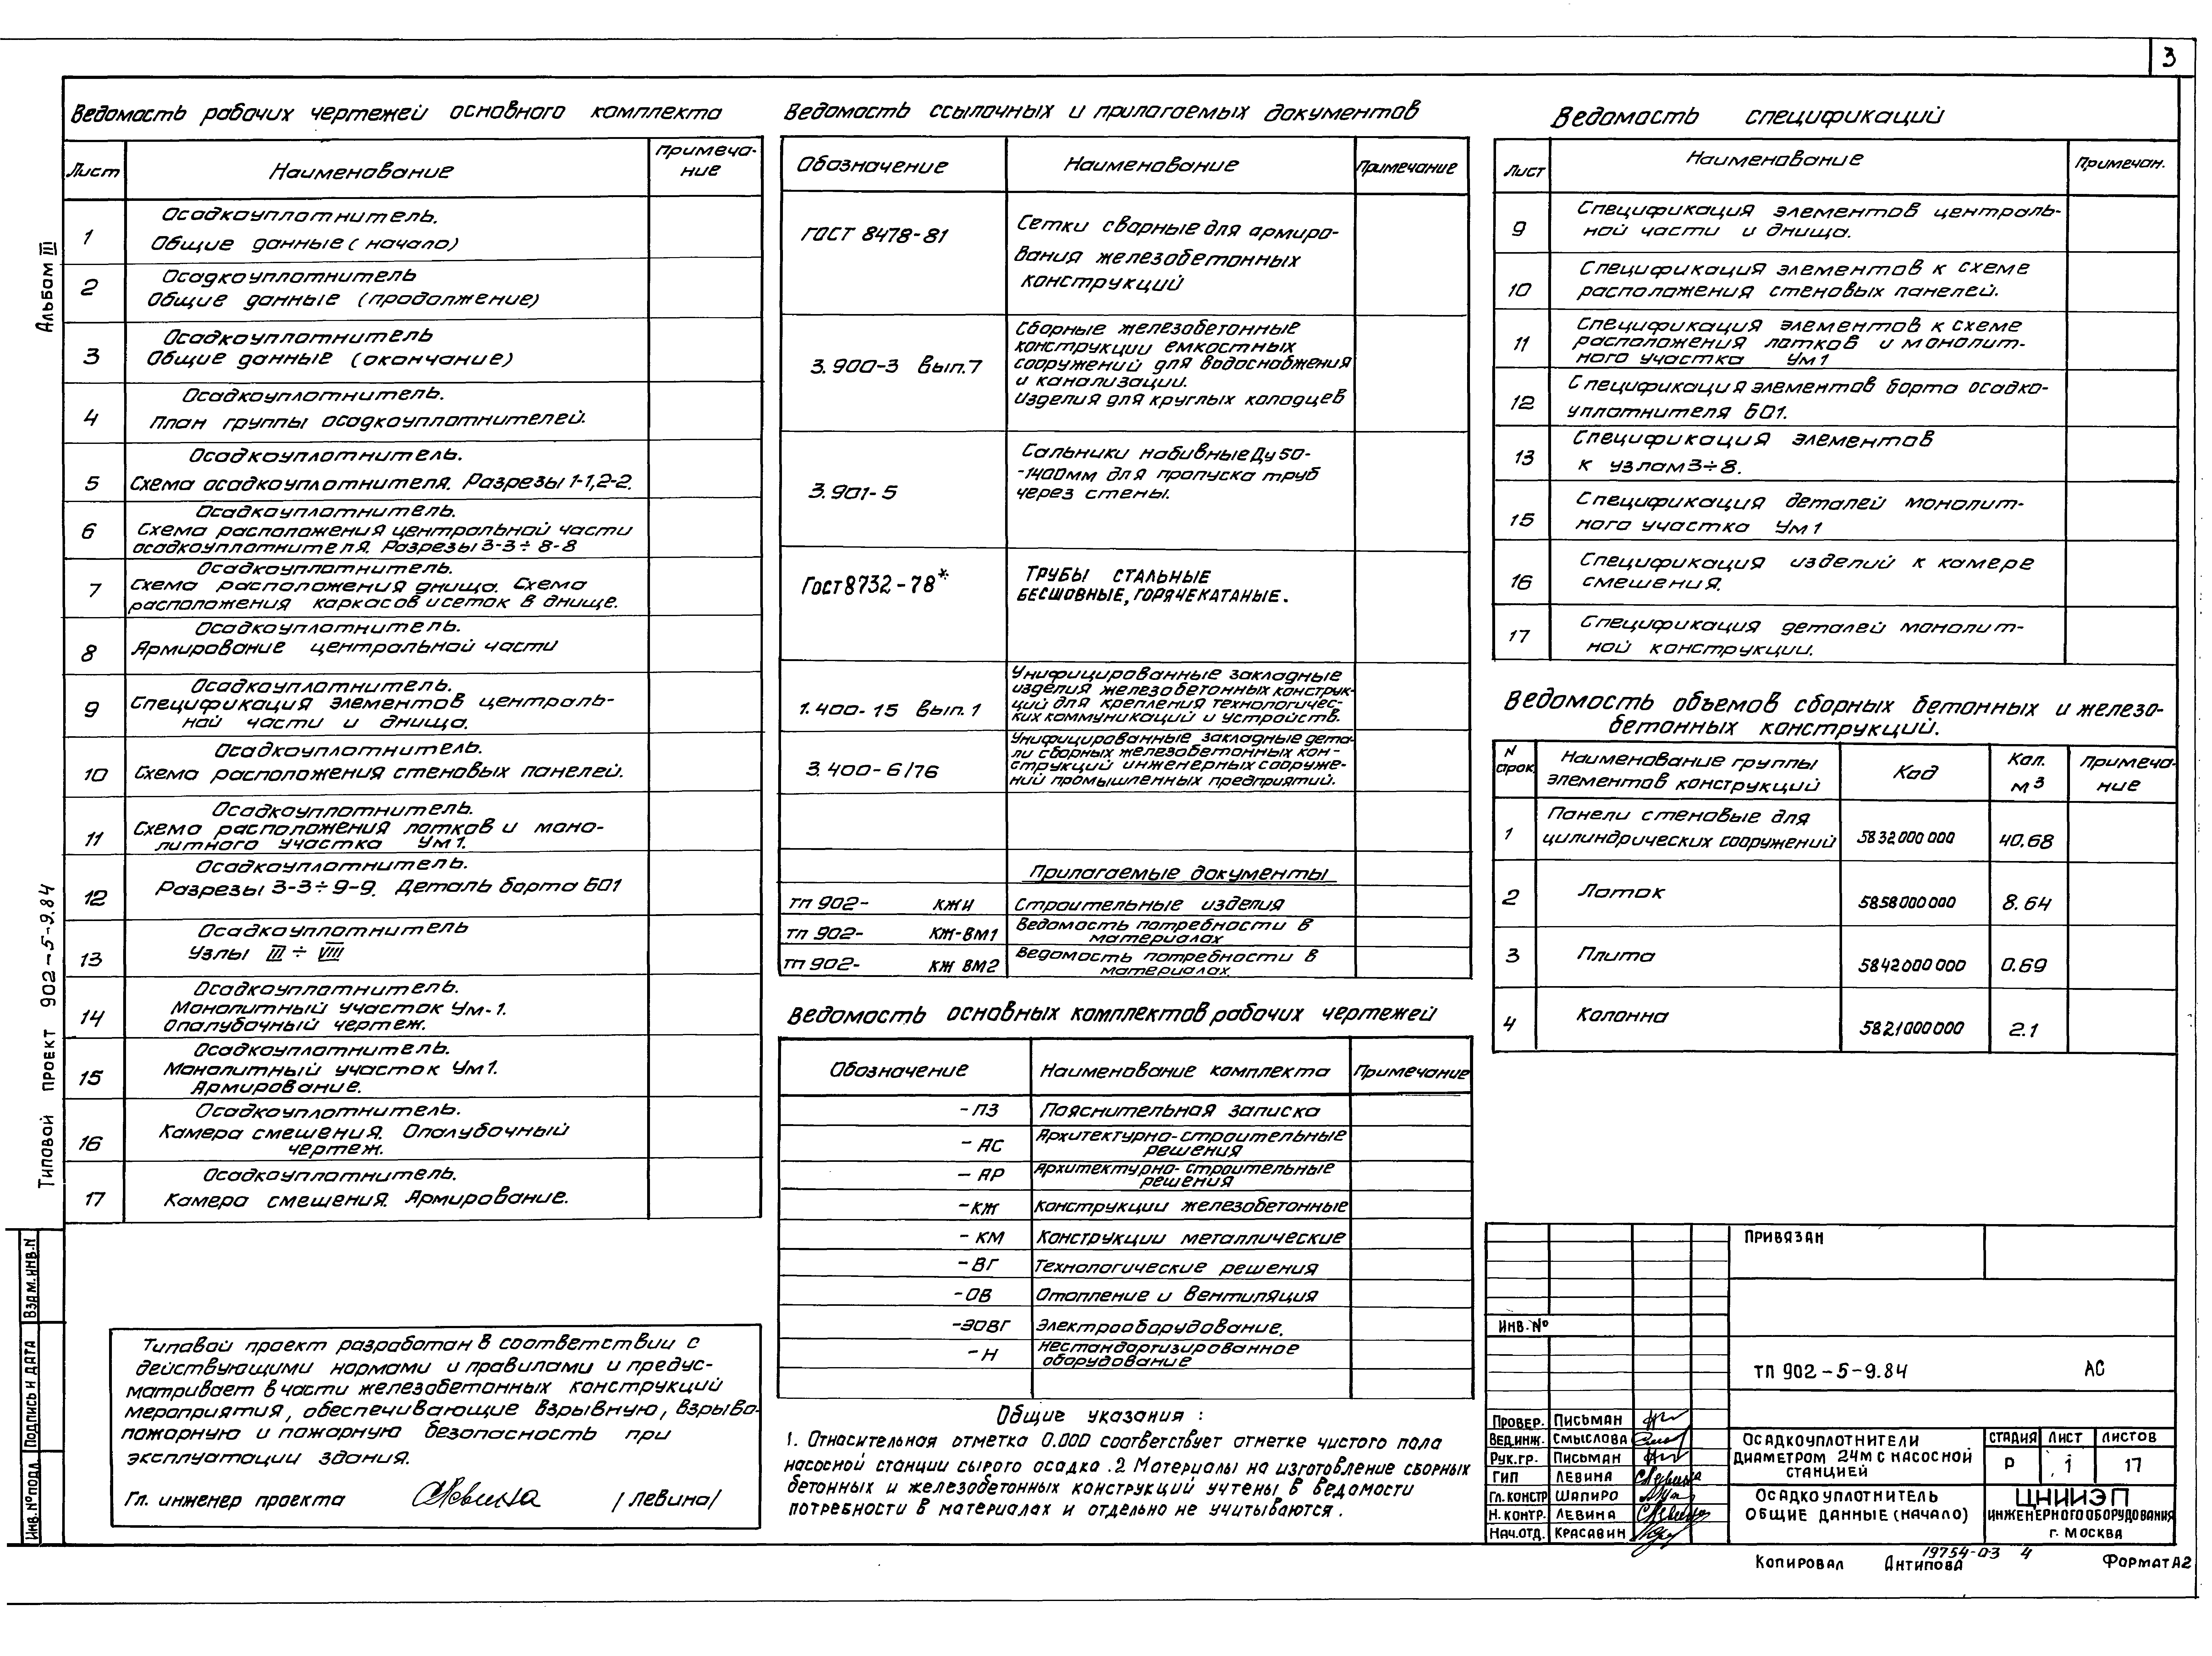 3
Альбом III
Типовой проект 902-5-9.84
Взам.инв.N
Подпись и дата
Инв.№подл.
Ведомость рабочих чертежей основного комплекта
Лист
Наименование
Примеча-
ние
1
Осадкоуплотнитель.
Общие данные (начало)
2
Осадкоуплотнитель
Общие данные (продолжение)
3
Осадкоуплотнитель
Общие данные (окончание)
4
Осадкоуплотнитель.
План группы осадкоуплотнителей.
5
Осадкоуплотнитель.
Схема осадкоуплотнителя. Разрезы 1-1,2-2.
6
Осадкоуплотнитель.
Схема расположения центральной части
осадкоуплотнителя. Разрезы 3-3÷8-8
7
Осадкоуплотнитель.
Схема расположения днища. Схема
расположения каркасов и сеток в днище.
8
Осадкоуплотнитель.
Армирование центральной части
9
Осадкоуплотнитель.
Спецификация элементов централь-
ной части и днища.
10
Осадкоуплотнитель.
Схема расположения стеновых панелей.
11
Осадкоуплотнитель.
Схема расположения лотков и моно-
литного участка Ум1.
12
Осадкоуплотнитель.
Разрезы 3-3÷9-9. Деталь борта Б01
13
Осадкоуплотнитель
Узлы III ÷ VIII
14
Осадкоуплотнитель.
Монолитный участок Ум-1.
Опалубочный чертеж.
15
Осадкоуплотнитель.
Монолитный участок Ум1.
Армирование.
16
Осадкоуплотнитель.
Камера смешения. Опалубочный
чертеж.
17
Осадкоуплотнитель.
Камера смешения. Армирование.
Типовой проект разработан в соответствии с
действующими нормами и правилами и предус-
матривает в части железобетонных конструкций
мероприятия, обеспечивающие взрывную, взрыво-
пожарную и пожарную безопасность при
эксплуатации здания.
Гл. инженер проекта /Левина/
Ведомость ссылочных и прилагаемых документов
Обозначение
Наименование
Примечание
ГОСТ 8478-81
Сетки сварные для армиро-
вания железобетонных
конструкций
3.900-3 Вып.7
Сборные железобетонные
конструкции емкостных
сооружений для водоснабжения
и канализации.
Изделия для круглых колодцев
3.901-5
Сальники набивные Ду 50-
-1400мм для пропуска труб
через стены.
Гост 8732-78*
Трубы стальные
бесшовные, горячекатаные.
1.400-15 Вып.1
Унифицированные закладные
изделия железобетонных конструк-
ций для крепления технологичес-
ких коммуникаций и устройств.
3.400-6/76
Унифицированные закладные дета-
ли сборных железобетонных кон-
струкций инженерных сооруже-
ний промышленных предприятий.
Прилагаемые документы
ТП 902- КЖИ
Строительные изделия
ТП 902- КЖ-ВМ1
Ведомость потребности в
материалах
ТП 902- КЖ ВМ2
Ведомость потребности в
материалах
Ведомость основных комплектов рабочих чертежей
Обозначение
Наименование комплекта
Примечание
-ПЗ
Пояснительная записка
-АС
Архитектурно-строительные
решения
-АР
Архитектурно-строительные
решения
-КЖ
Конструкции железобетонные
-КМ
Конструкции металлические
-ВГ
Технологические решения
-ОВ
Отопление и вентиляция
-ЭОВГ
Электрооборудование.
-Н
Нестандартизированное
оборудование
Общие указания :
1. Относительная отметка 0.000 соответствует отметке чистого пола
насосной станции сырого осадка .2 Материалы на изготовление сборных
бетонных и железобетонных конструкций учтены в ведомости
потребности в материалах и отдельно не учитываются.
Ведомость спецификаций
Лист
Наименование
Примечан.
9
Спецификация элементов централь-
ной части и днища.
10
Спецификация элементов к схеме
расположения стеновых панелей.
11
Спецификация элементов к схеме
расположения лотков и монолит-
ного участка Ум1
12
Спецификация элементов борта осадко-
уплотнителя Б01.
13
Спецификация элементов
к узлам 3÷8.
15
Спецификация деталей монолит-
ного участка Ум1
16
Спецификация изделий к камере
смешения.
17
Спецификация деталей монолит-
ной конструкции.
Ведомость объемов сборных бетонных и железо-
бетонных конструкций.
N
строк.
Наименование группы
элементов конструкций
Код
Кол.
м3
Примеча-
ние
1
Панели стеновые для
цилиндрических сооружений
5832000000
40.68
2
Лоток
5858000000
8.64
3
Плита
5842000000
0.69
4
Колонна
5821000000
2.1
Привязан
Инв.№
ТП 902-5-9.84 АС
Провер. Письман
Вед.инж. Смыслова
Рук.гр. Письман
ГИП Левина
Гл.констр Шапиро
Н.контр. Левина
Нач.отд. Красавин
Осадкоуплотнители
диаметром 24м с насосной
станцией
Стадия Лист Листов
Р 1 17
Осадкоуплотнитель
Общие данные (начало)
ЦНИИЭП
инженерного оборудования
г. Москва
19754-03 4
Копировал Антипова Формат А2